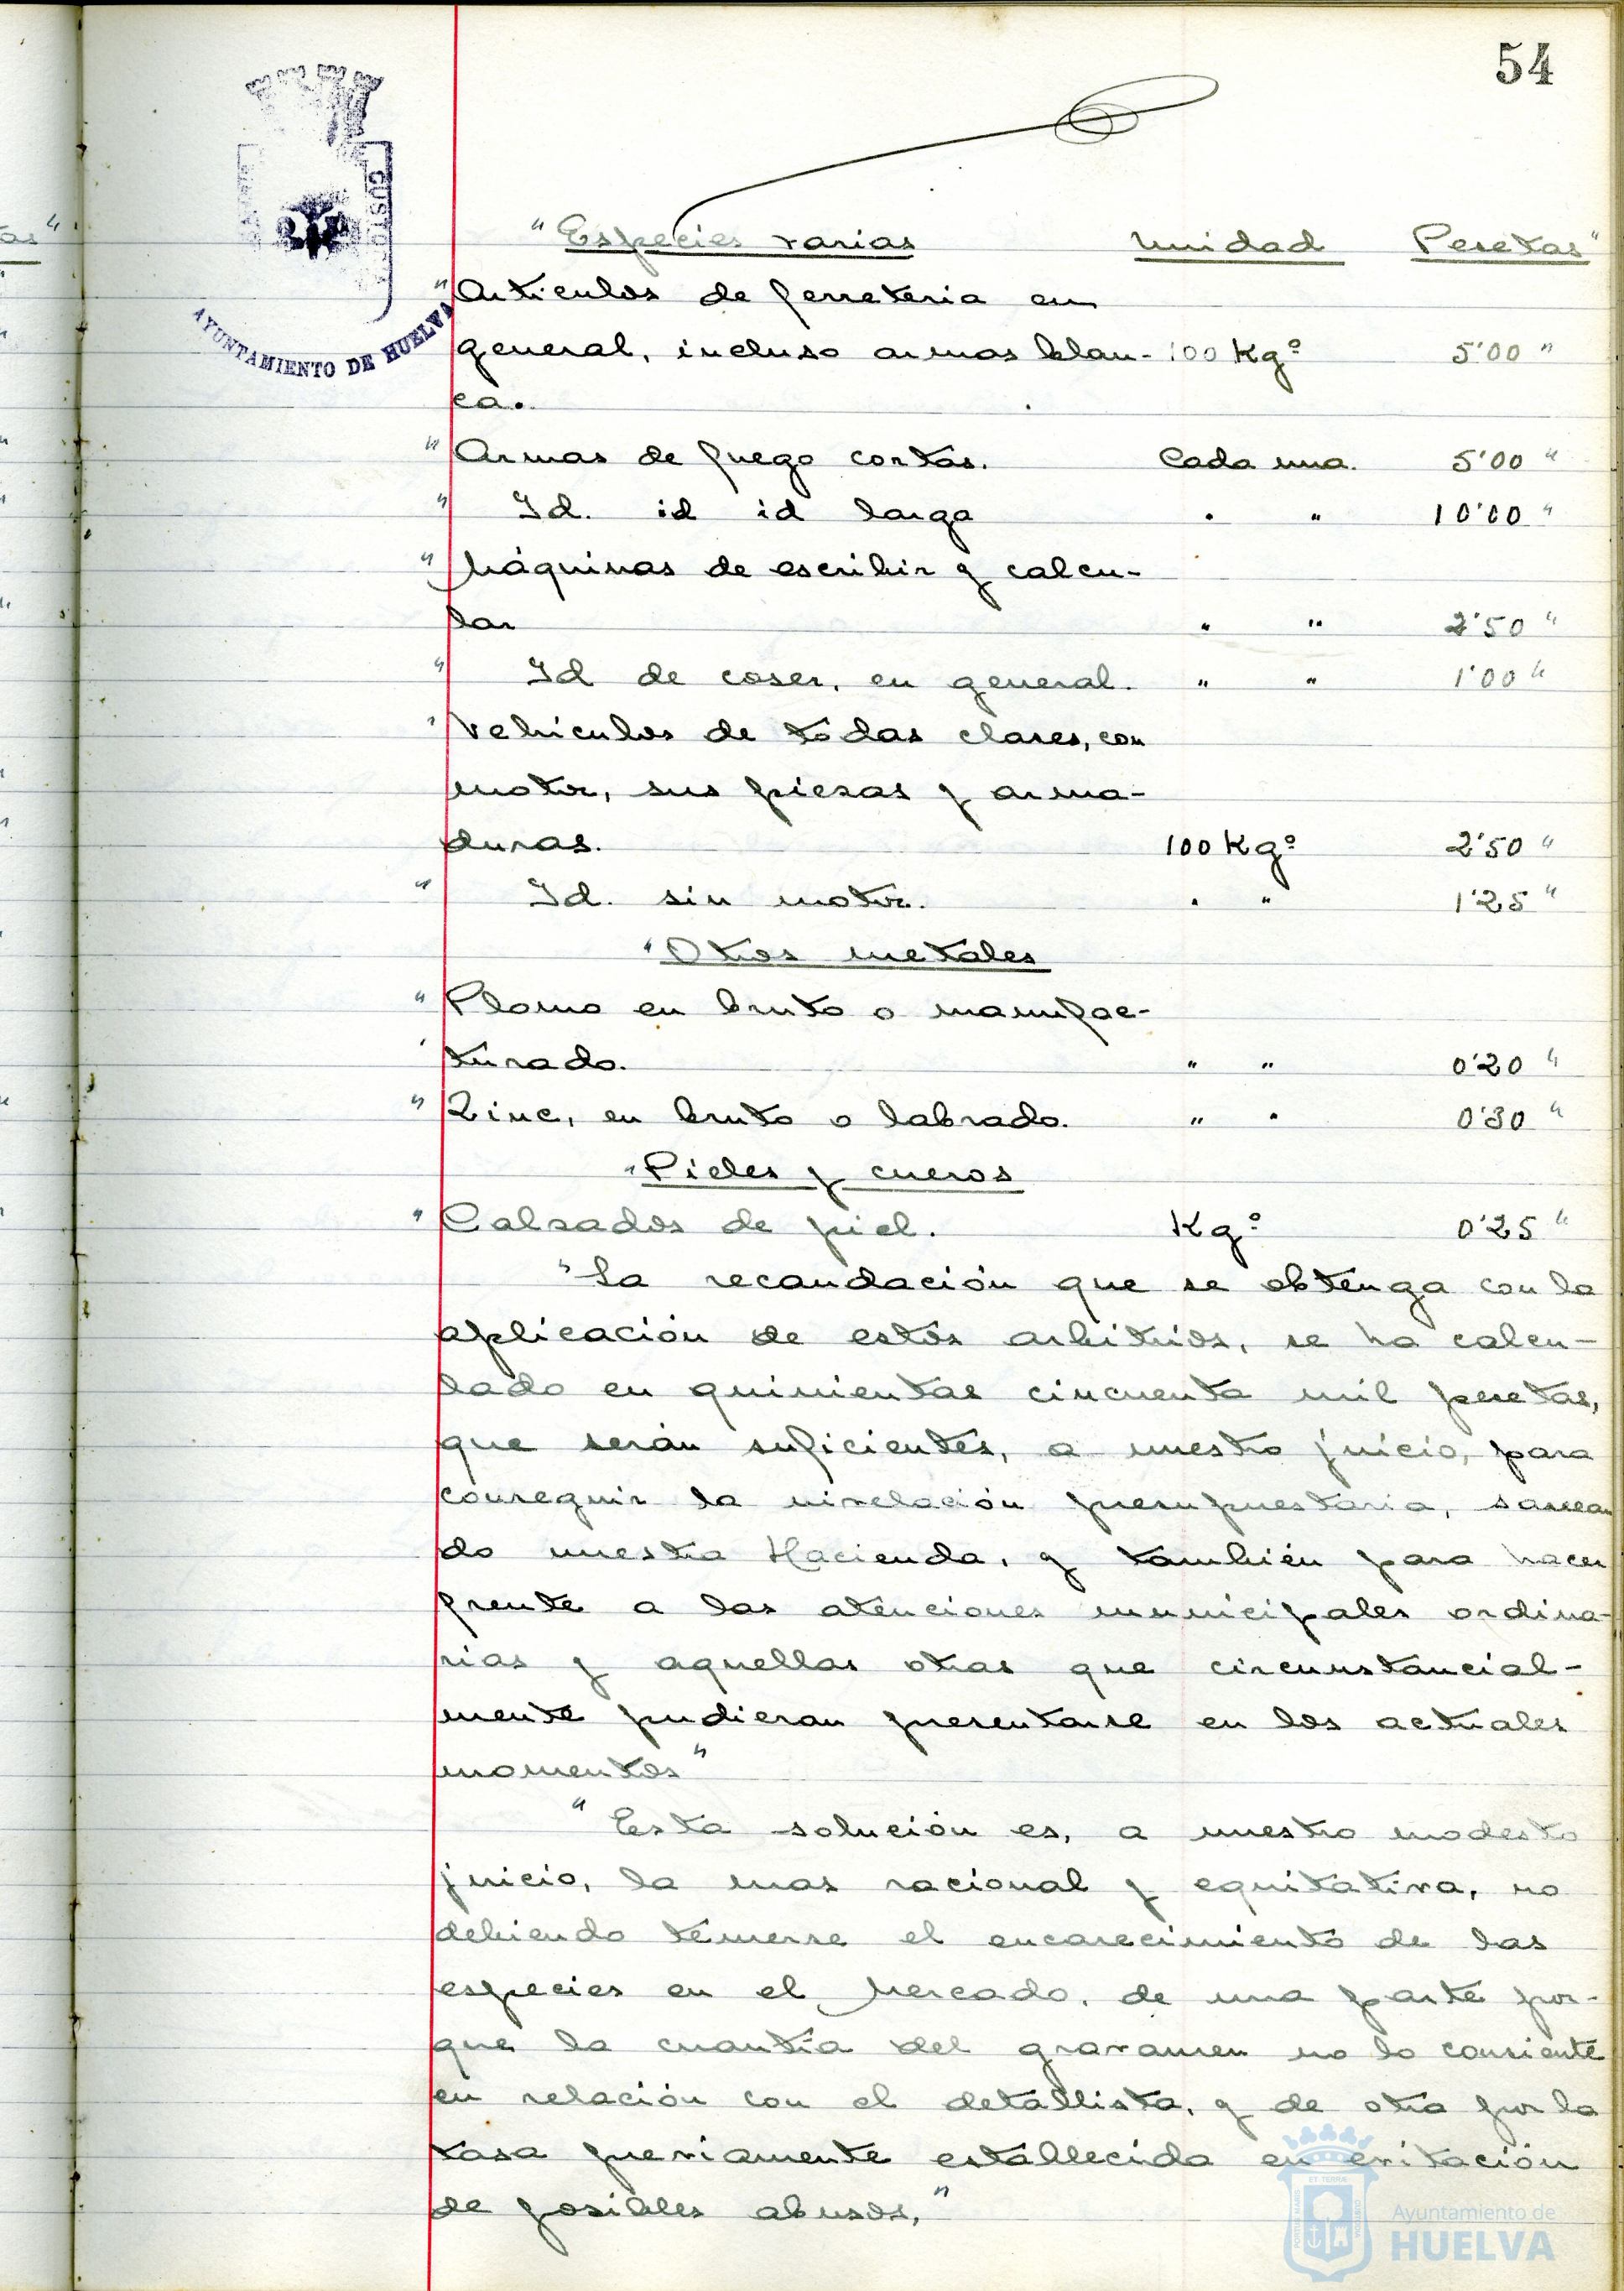 54
"Especies varias Unidad Pesetas"
"Articulos de ferreteria en
general, incluso armas blan- 100 Kgº 5'00 "
ca.
" Armas de fuego cortas. Cada una. 5'00 "
" Id. id id larga " " 10'00 "
" Máquinas de escribir y calcu-
lar " " 2'50 "
" Id de coser, en general. " " 1'00 "
" Vehiculos de todas clases, con
motor, sus piezas y arma-
duras. 100 Kgº 2'50 "
" Id. sin motor. " " 1'25 "
"Otros metales
" Plomo en bruto o manufac-
" turado. " " 0'20 "
" Zinc, en bruto o labrado. " " 0'30 "
"Pieles y cueros
" Calzados de piel. Kgº 0'25 "
"La recaudación que se obtenga con la
aplicación de estos arbitrios, se ha calcu-
lado en quinientas cincuenta mil pesetas,
que serán suficientes, a nuestro juicio, para
conseguir la nivelación presupuestaria, sanean
do nuestra Hacienda, y también para hacer
frente a las atenciones municipales ordina-
rias y aquellas otras que circunstancial-
mente pudieran presentarse en los actuales
momentos"
"Esta solución es, a nuestro modesto
juicio, la mas racional y equitativa, no
debiendo temerse el encarecimiento de las
especies en el Mercado, de una parte por-
que la cuantía del gravamen no lo consiente
en relación con el detallista, y de otra por la
tasa previamente establecida en evitación
de posibles abusos,"
AYUNTAMIENTO DE HUELVA
Ayuntamiento de
HUELVA